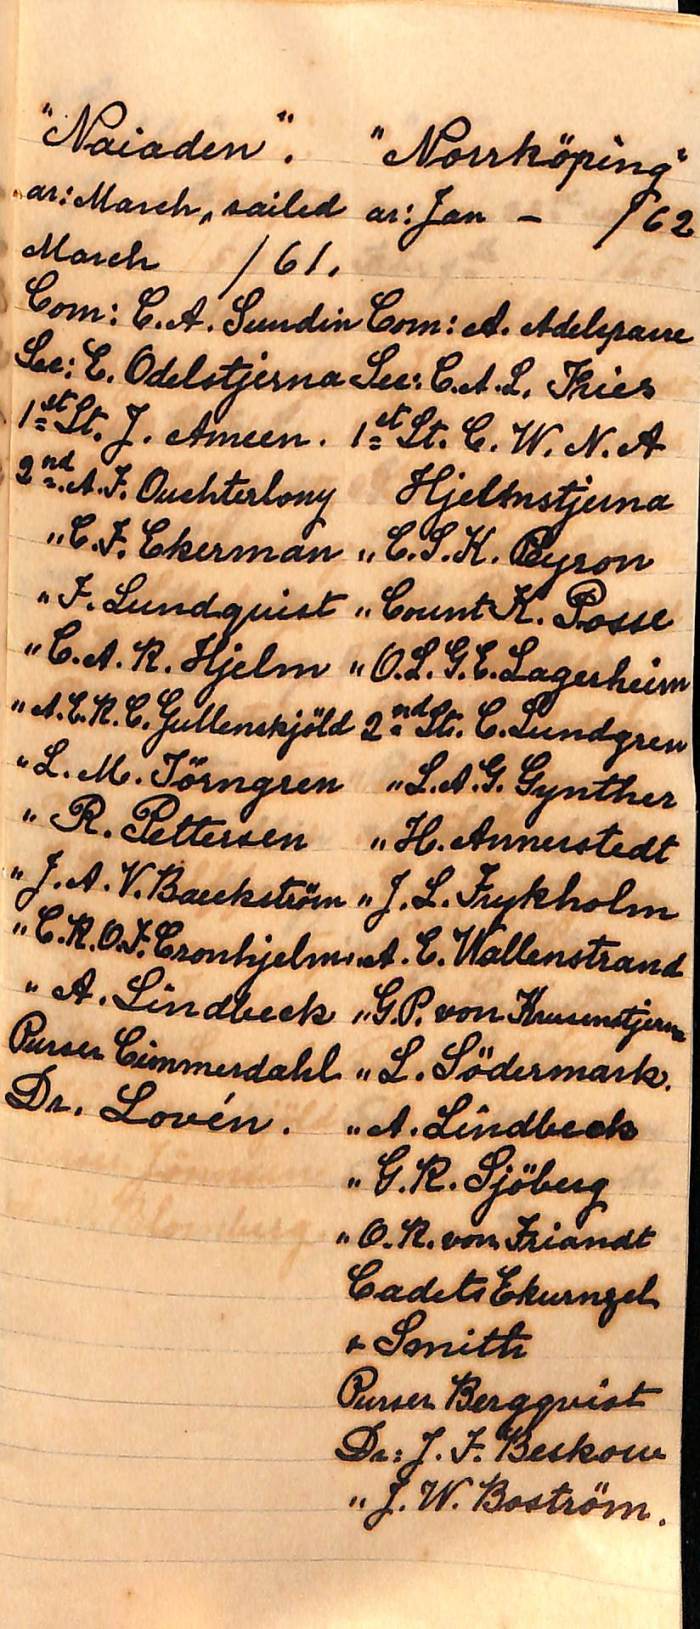 "Naiaden".
ar: March, sailed
March /61.
Com: C. A. Sundin
Sec: E. Odelstjerna
1st Lt. J. Ameen.
2nd. A. F. Ouchterlony
" C. F. Ekerman
" F. Lundquist
" C. A. R. Hjelm
" A. E. R. C. Gullenskjöld
" L. M. Törngren
" R. Pettersen
" J. A. V. Baeckström
" C. R. O. F. Cronhjelm
" A. Lindbeck
Purser Cimmerdahl
Dr. Lovén.
"Norrköping"
ar: Jan - /62
Com: A. Adelsparre
Sec: C. A. L. Thies
1st Lt. C. W. N. A
Hjelmstjerna
" C. S. K. Peyron
" Count K. Posse
" O. L. G. E. Lagerheim
2nd Lt. C. Lundgren
" L. A. G. Gynther
" H. Annerstedt
" J. L. Frykholm
" A. E. Wallenstrand
" G. P. von Krusenstjerna
" L. Södermark.
" A. Lindbeck
" G. R. Sjöberg
" O. R. von Friandt
Cadets Ekurnzel
& Smith
Purser Bergqvist
Dr: J. F. Beskow
" J. W. Boström.